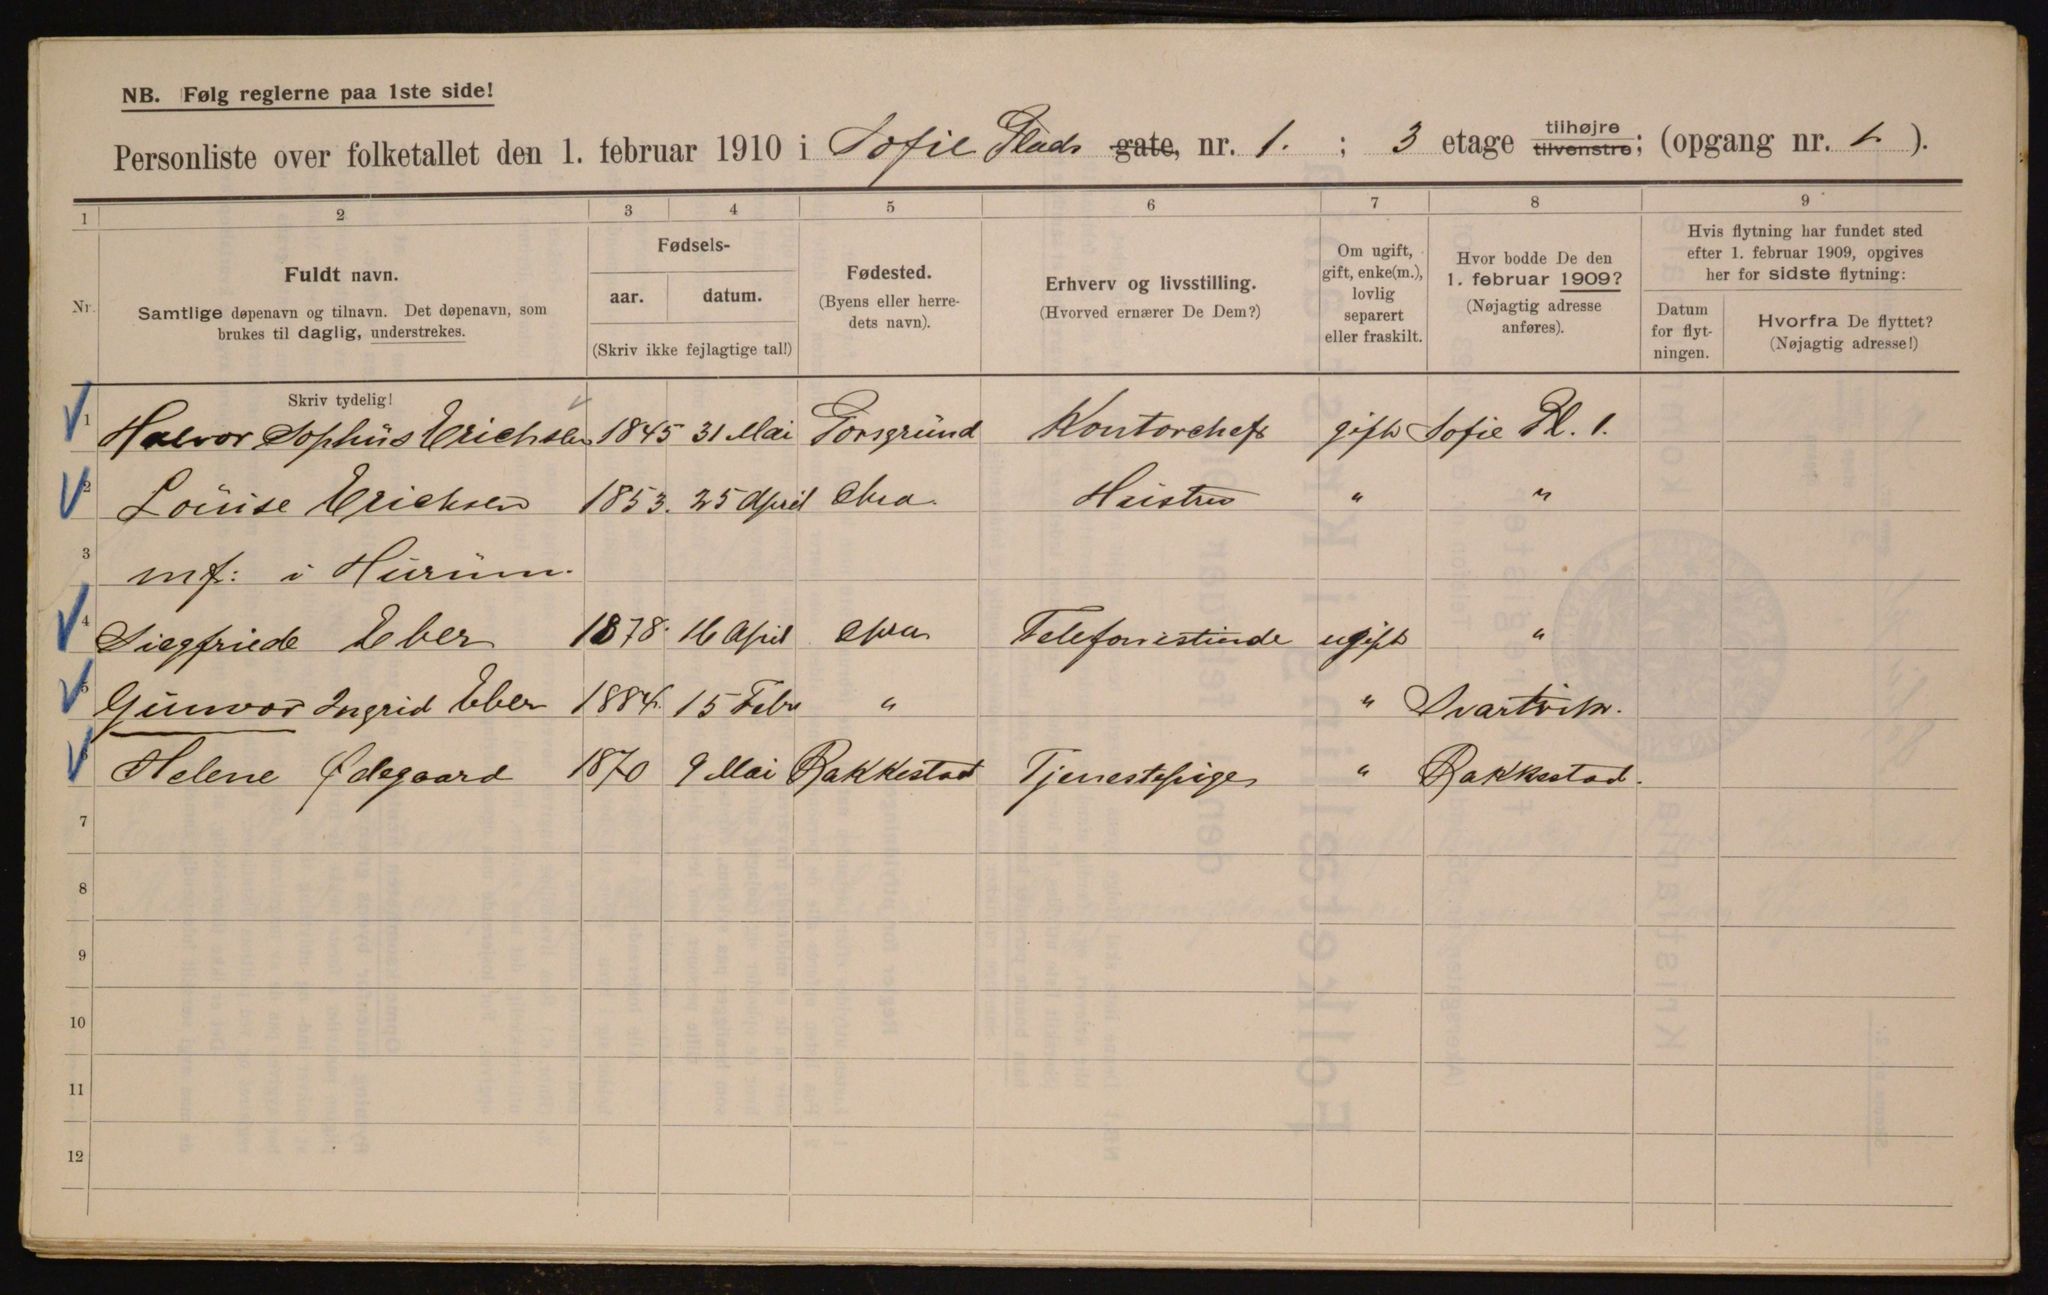 NB. Følg reglerne paa 1ste side!
Personliste over folketallet den 1. februar 1910 i Sofie Plads gate, nr. 1. ; 3 etage tilhøjre tilvenstre; (opgang nr. 1 ).
1 2 3 4 5 6 7 8 9
Nr.
Fuldt navn.
Samtlige døpenavn og tilnavn. Det døpenavn, som
brukes til daglig, understrekes.
Fødsels-
aar. datum.
(Skriv ikke fejlagtige tal!)
Fødested.
(Byens eller herre-
dets navn).
Erhverv og livsstilling.
(Hvorved ernærer De Dem?)
Om ugift,
gift, enke(m.),
lovlig
separert
eller fraskilt.
Hvor bodde De den
1. februar 1909?
(Nøjagtig adresse
anføres).
Hvis flytning har fundet sted
efter 1. februar 1909, opgives
her for sidste flytning:
Datum
for flyt-
ningen.
Hvorfra De flyttet?
(Nøjagtig adresse!)
Skriv tydelig!
1 Halvor Sophus Erichsen 1845 31 Mai Porsgrund Kontorchef gift Sofie Pl. 1.
2 Louise Erichsen 1853. 25 April Chra. Hustru " "
3 mf: i Hurum.
4 Siegfriede Eber 1878. 16 April Chra Telefonistinde ugift "
5 Gunvor Ingrid Eber 1884. 15 Febr " " Svartvik.
Helene Ødegaard 1870 9 Mai Rakkestad Tjenestepige " Rakkestad.
7
8
9
10
11
12